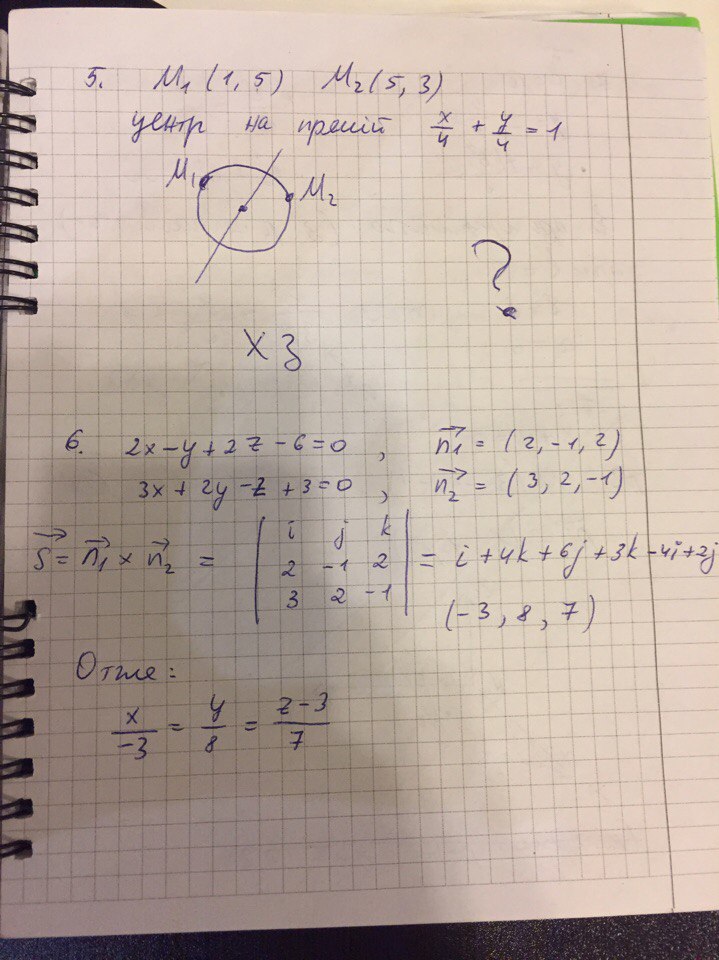 5. M₁ (1, 5) M₂ (5, 3)
центр на прямій x/4 + y/4 = 1
M₁ M₂
?
ХЗ
6. 2x - y + 2z - 6 = 0 , n₁ = (2, -1, 2)
3x + 2y - z + 3 = 0 , n₂ = (3, 2, -1)
S = n₁ × n₂ = | i j k | = i + 4k + 6j + 3k - 4i + 2j
2 -1 2
3 2 -1
(-3, 8, 7)
Отже:
x/-3 = y/8 = z-3/7